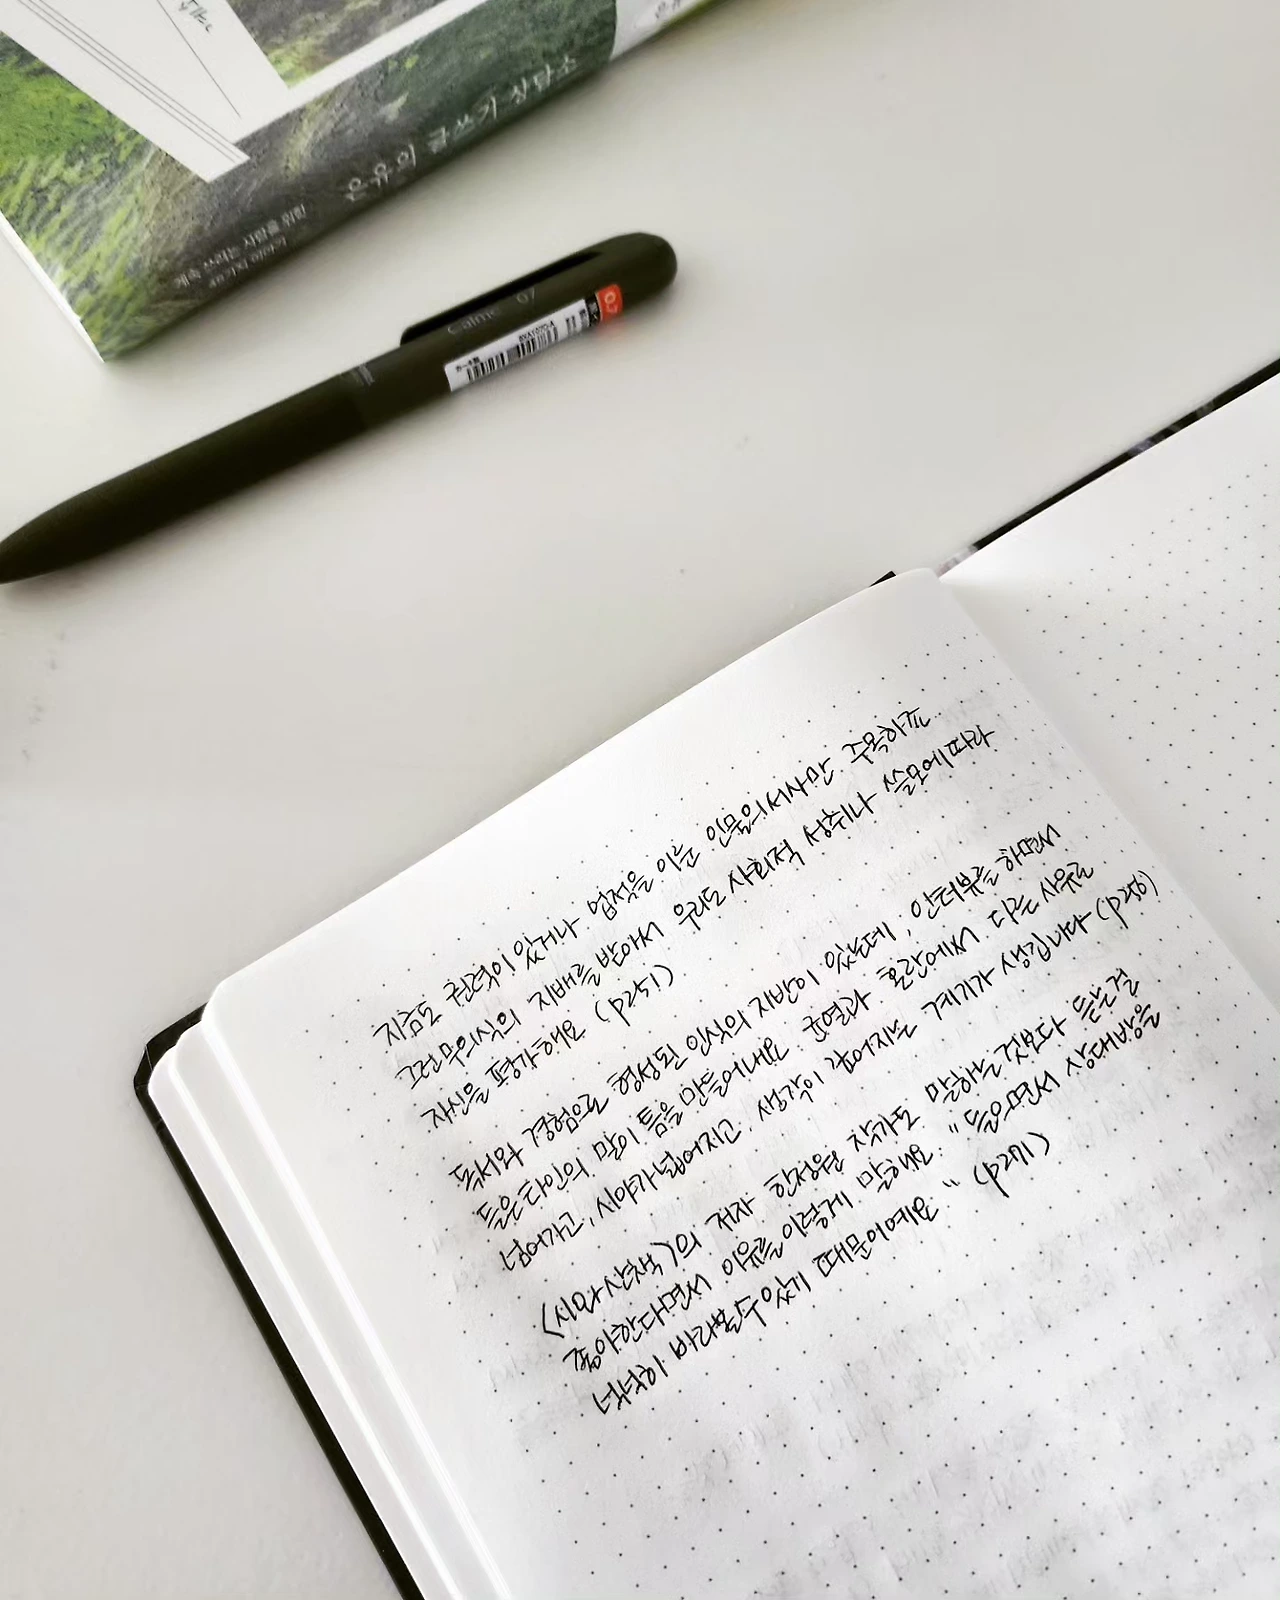 은유의 글쓰기 상담소
계속 쓰려는 사람을 위한
Calme 07
0.7
지금도 권력이 있거나 업적을 이룬 인물의 서사만 주목하죠.
그런 무의식의 지배를 받아서 우리도 사회적 성취나 쓸모에 따라
자신을 평가해요 (p251)
독서와 경험으로 형성된 인식의 지반이 있는데, 인터뷰를 하면서
들은 타인의 말이 틈을 만들어내요. 균열과 혼란에서 다른 사유로
넘어가고, 시야가 넓어지고, 생각이 깊어지는 계기가 생깁니다 (p256)
〈시와 산책〉의 저자 한정원 작가도 말하는 것보다 듣는 걸
좋아한다면서 이유를 이렇게 말해요. "들으면서 상대방을
넉넉히 바라볼 수 있기 때문이에요." (p271)